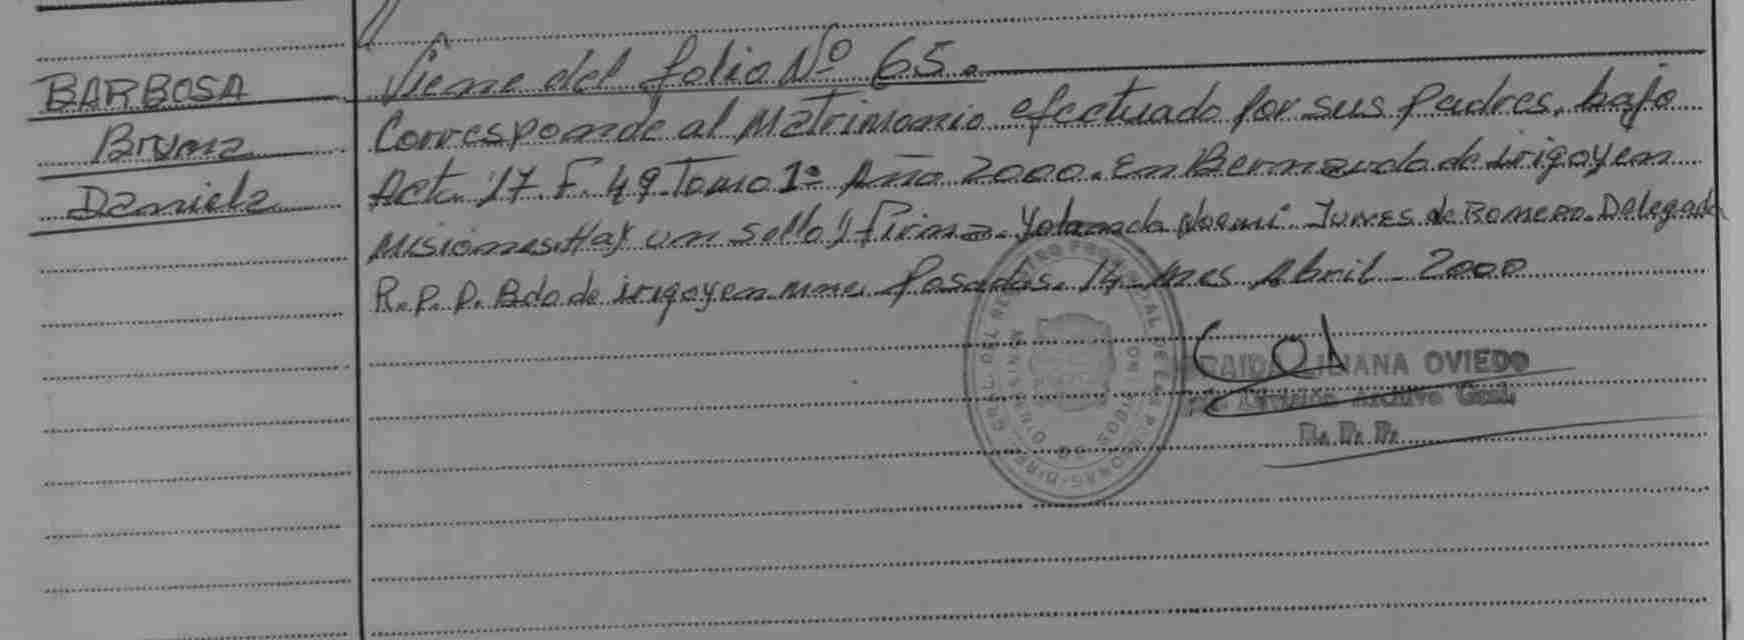 BARBOSA
Bruna
Daniela
Viene del folio Nº 65.
Corresponde al Matrimonio efectuado por sus padres, bajo
Acta 17. F. 49. Tomo 1º Año 2000. En Bernardo de Irigoyen
Misiones. Hay un sello y firma. Yolanda Noemi Junes de Romero. Delegada
R.P.P. Bdo de Irigoyen Mnes. Posadas. 14 Mes Abril 2000
LILIANA OVIEDO
División Archivo Gral.
R. P. P.